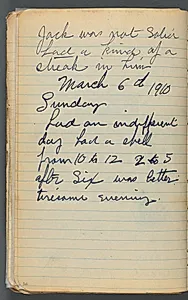 Jack was not Solid
had a kind of a
streak in him
March 6 d 1910
Sunday
had an indifferent
day had a spell
from 10 to 12 2 to 5
aftr Six was better
tiresome evening.